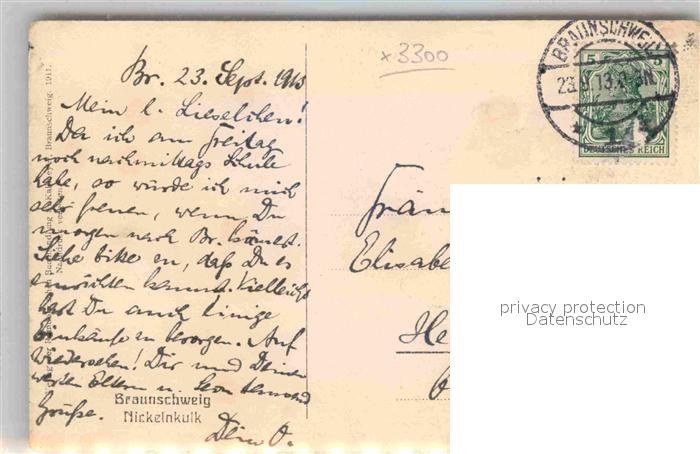 x3300
BRAUNSCHWEIG
23.9.13.
5 5
DEUTSCHES REICH
Br. 23. Sept. 1913
Mein l. Lieselchen!
Da ich am Freitag
noch nachmittags Schule
habe, so würde ich mich
sehr freuen, wenn Du
morgen nach Br. kämest.
Sehe bitte zu, daß Du es
einrichten kannst. Vielleicht
hast Du auch einige
Einkäufe zu besorgen. Auf
Wiedersehen! Dir und Deinen
werten Eltern u.
Grüße.
Dein O.
Fräu
Elisab
He
privacy protection
Datenschutz
Braunschweig
Nickelnkulk
Braunschweig. 1911.